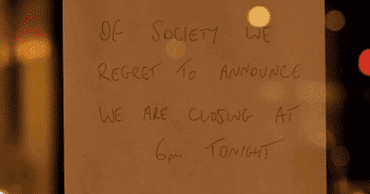 OF SOCIETY WE
REGRET TO ANNOUNCE
WE ARE CLOSING AT
6pm TONIGHT